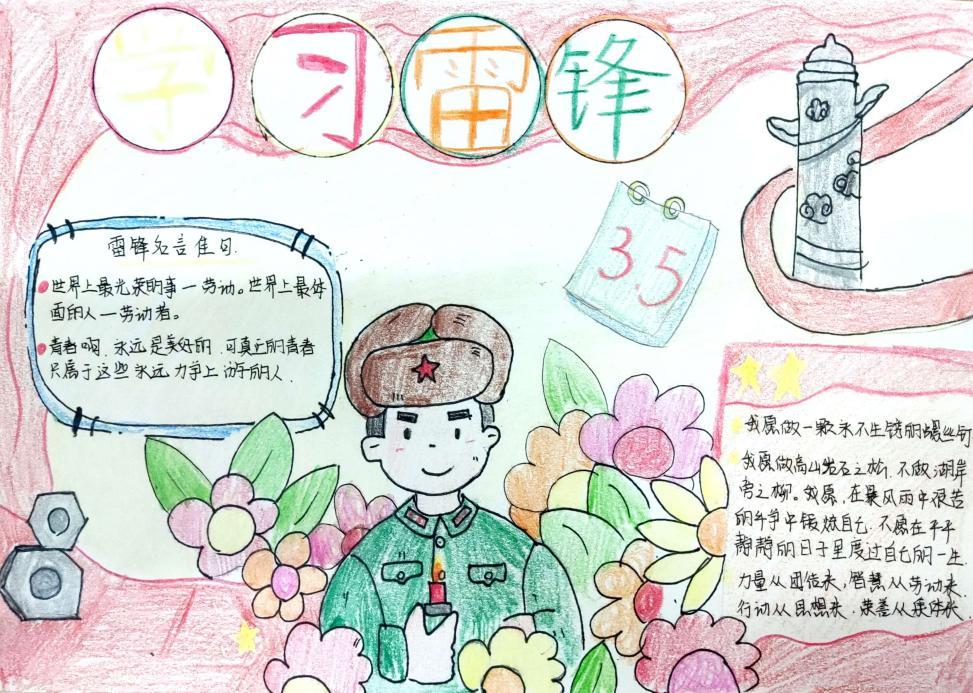 学习雷锋
3.5
雷锋名言佳句.
世界上最光荣的事一劳动。世界上最体
面的人一劳动者。
青春啊,永远是美好的,可真正的青春
只属于这些永远力争上游的人.
我愿做一颗永不生锈的螺丝钉
我愿做高山岩石之松,不做湖岸
旁之柳。我愿,在暴风雨中很苦
的斗争中锻炼自己,不愿在平平
静静的日子里度过自己的一生.
力量从团结来,智慧从劳动来,
行动从思想来,荣誉从集体来.